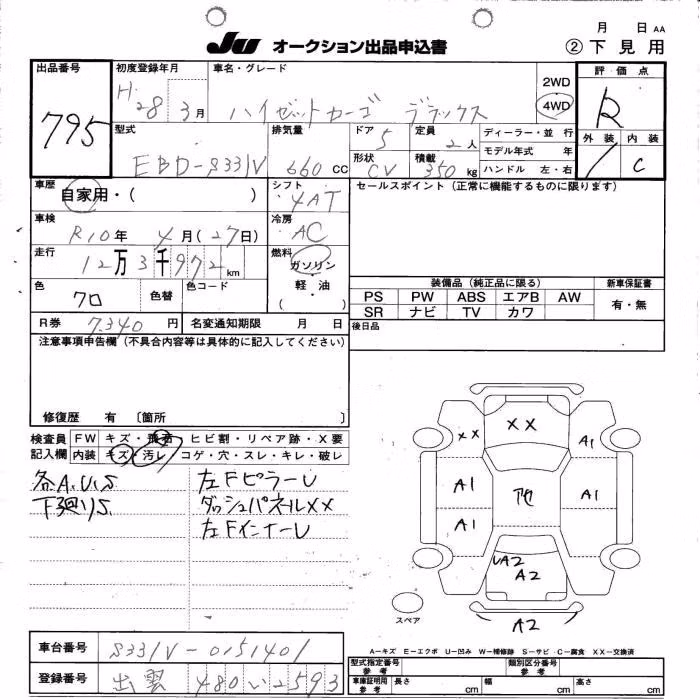 月 日 AA
JU オークション出品申込書 ②下見用
出品番号 795
初度登録年月 H 28 3月
車名・グレード ハイゼットカーゴ デラックス
2WD
4WD
評価点 R
外装 内装 C
型式 EBD-S331V
排気量 660 CC
ドア 5
定員 2人
形状 CV
積載 350 kg
ディーラー・並 行
モデル年式 年
ハンドル 左・右
車歴 自家用・( )
シフト 4AT
セールスポイント(正常に機能するものに限ります)
車検 R10年 4月(27日)
冷房 AC
走行 12万3千972km
燃料 ガソリン
軽・油
( )
色 クロ
色替
色コード
装備品(純正品に限る)
新車保証書
PS PW ABS エアB AW
SR ナビ TV カワ
有・無
R券 7,340円
名変通知期限 月 日
後日品
注意事項申告欄(不具合内容等は具体的に記入してください)
修復歴 有 〔箇所 〕
検査員 FW キズ・飛石 ヒビ割・リペア跡・X要
記入欄 内装 キズ・汚レ コゲ・穴・スレ・キレ・破レ
各A.U.S
下廻りS
左FピラーU
ダッシュパネルXX
左FインナーU
XX
XX
A1
A1
A1
A1
UA2
A2
A2
スペア
A-キズ E-エクボ U-凹み W-補修跡 S-サビ C-腐食 XX-交換済
車台番号 S331V-0151401
登録番号 出雲 480 い 2593
型式指定番号 参考
類別区分番号 参考
車庫証明用 参考
長さ cm
幅 cm
高さ cm